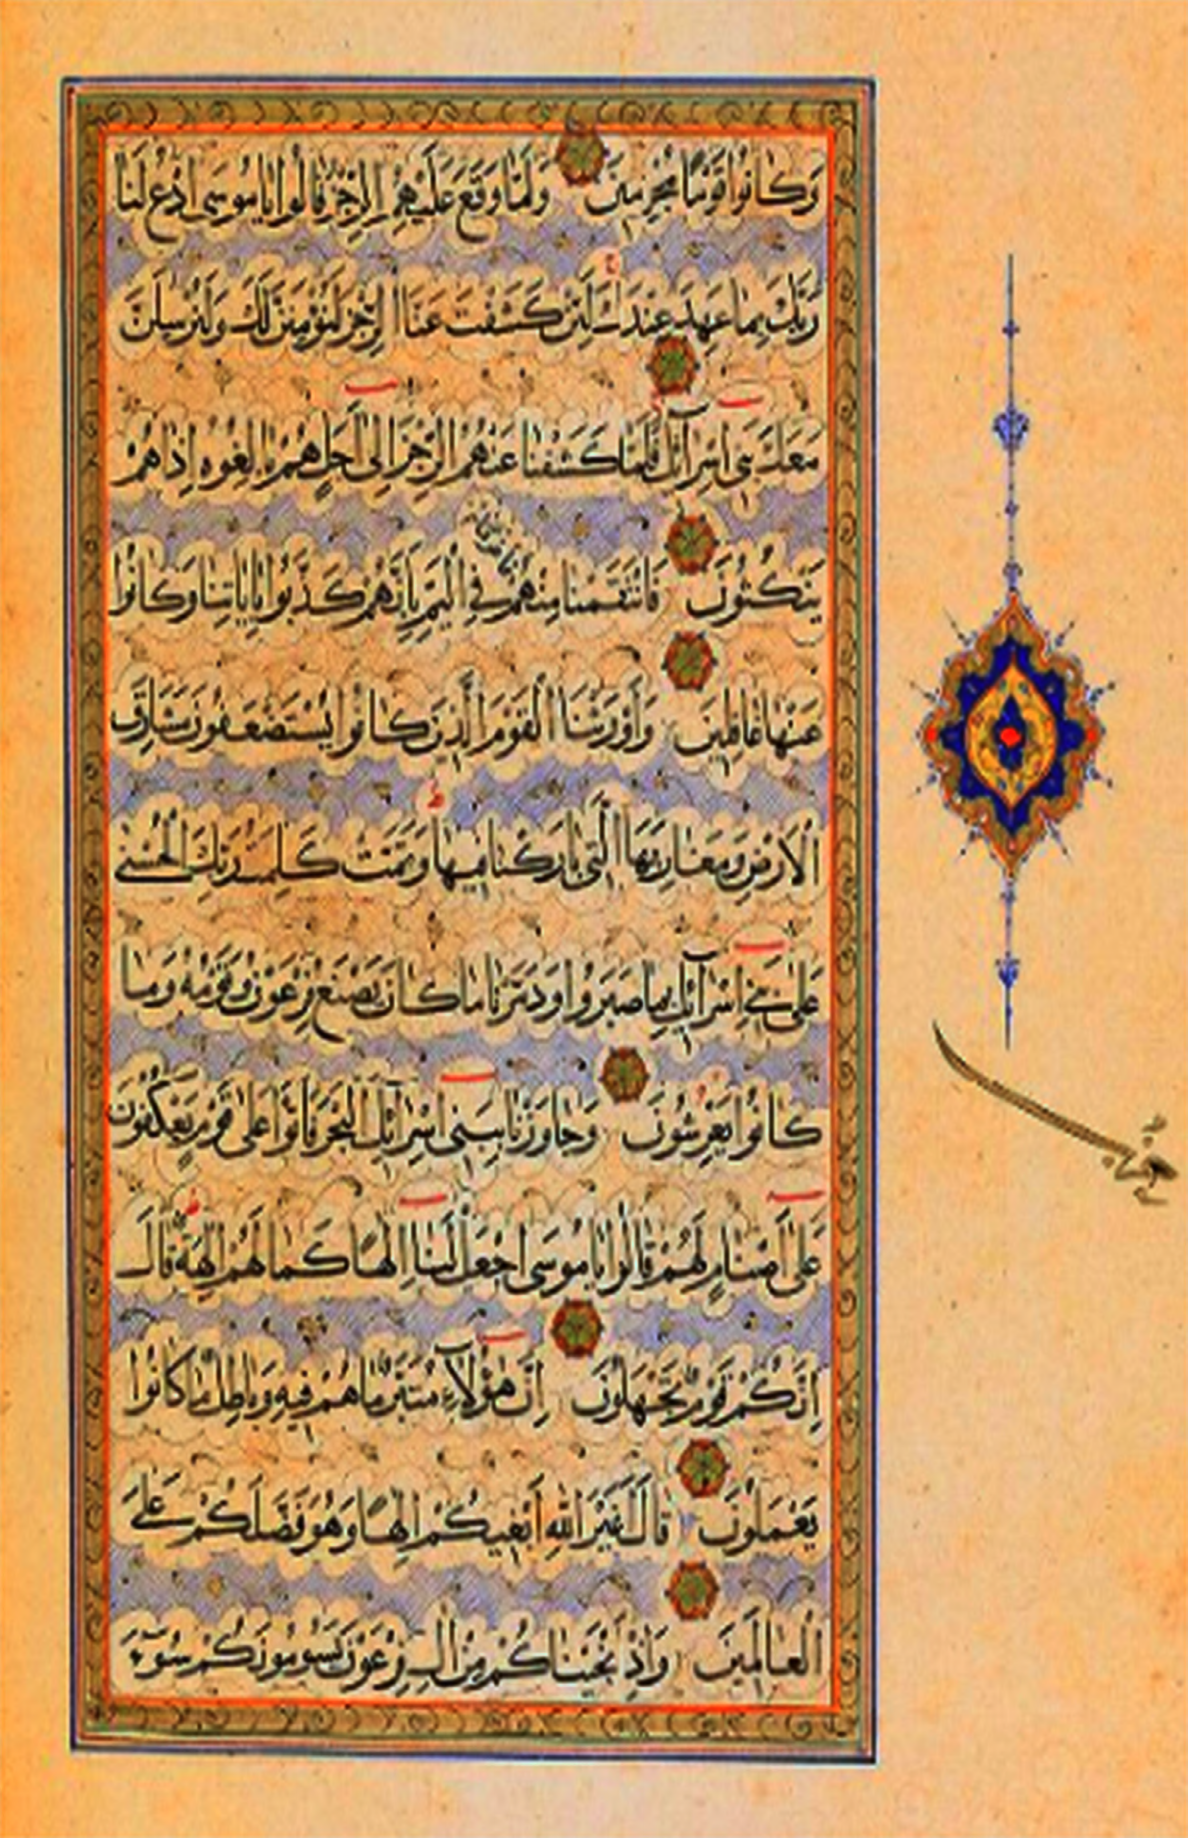 وَكَانُوا قَوْمًا مُجْرِمِينَ وَلَمَّا وَقَعَ عَلَيْهِمُ الرِّجْزُ قَالُوا يَامُوسَى ادْعُ لَنَا
رَبَّكَ بِمَا عَهِدَ عِنْدَكَ لَئِنْ كَشَفْتَ عَنَّا الرِّجْزَ لَنُؤْمِنَنَّ لَكَ وَلَنُرْسِلَنَّ
مَعَكَ بَنِي اسْرَآئِلَ فَلَمَّا كَشَفْنَا عَنْهُمُ الرِّجْزَ اِلٰى اَجَلٍ هُمْ بَالِغُوهُ اِذَا هُمْ
يَنْكُثُونَ فَانْتَقَمْنَا مِنْهُمْ فَاَغْرَقْنَاهُمْ فِي الْيَمِّ بِاَنَّهُمْ كَذَّبُوا بِاٰيَاتِنَا وَكَانُوا
عَنْهَا غَافِلِينَ وَاَوْرَثْنَا الْقَوْمَ الَّذِينَ كَانُوا يُسْتَضْعَفُونَ مَشَارِقَ
الْاَرْضِ وَمَغَارِبَهَا الَّتِي بَارَكْنَا فِيهَا وَتَمَّتْ كَلِمَتُ رَبِّكَ الْحُسْنٰى
عَلٰى بَنِي اِسْرَآئِلَ بِمَا صَبَرُوا وَدَمَّرْنَا مَا كَانَ يَصْنَعُ فِرْعَوْنُ وَقَوْمُهُ وَمَا
كَانُوا يَعْرِشُونَ وَجَاوَزْنَا بِبَنِي اِسْرَآئِلَ الْبَحْرَ فَاَتَوْا عَلٰى قَوْمٍ يَعْكُفُونَ
عَلٰى اَصْنَامٍ لَهُمْ قَالُوا يَامُوسَى اجْعَلْ لَنَا اِلٰهًا كَمَا لَهُمْ اٰلِهَةٌ قَالَ
اِنَّكُمْ قَوْمٌ تَجْهَلُونَ اِنَّ هٰؤُلَآءِ مُتَبَّرٌ مَا هُمْ فِيهِ وَبَاطِلٌ مَا كَانُوا
يَعْمَلُونَ قَالَ اَغَيْرَ اللّٰهِ اَبْغِيكُمْ اِلٰهًا وَهُوَ فَضَّلَكُمْ عَلَى
الْعَالَمِينَ وَاِذْ اَنْجَيْنَاكُمْ مِنْ اٰلِ فِرْعَوْنَ يَسُومُونَكُمْ سُوٓءَ